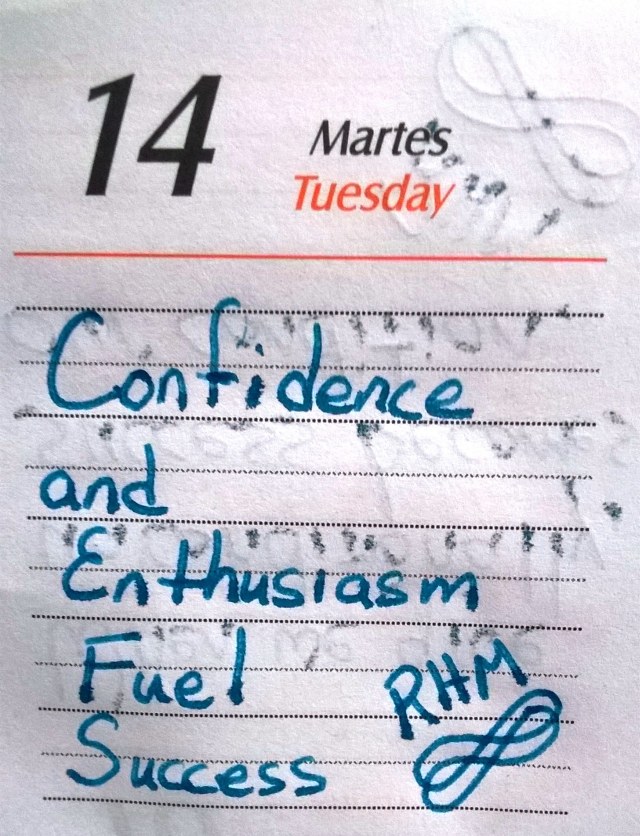 14
Martes
Tuesday
Confidence
and
Enthusiasm
Fuel
Success
RHM